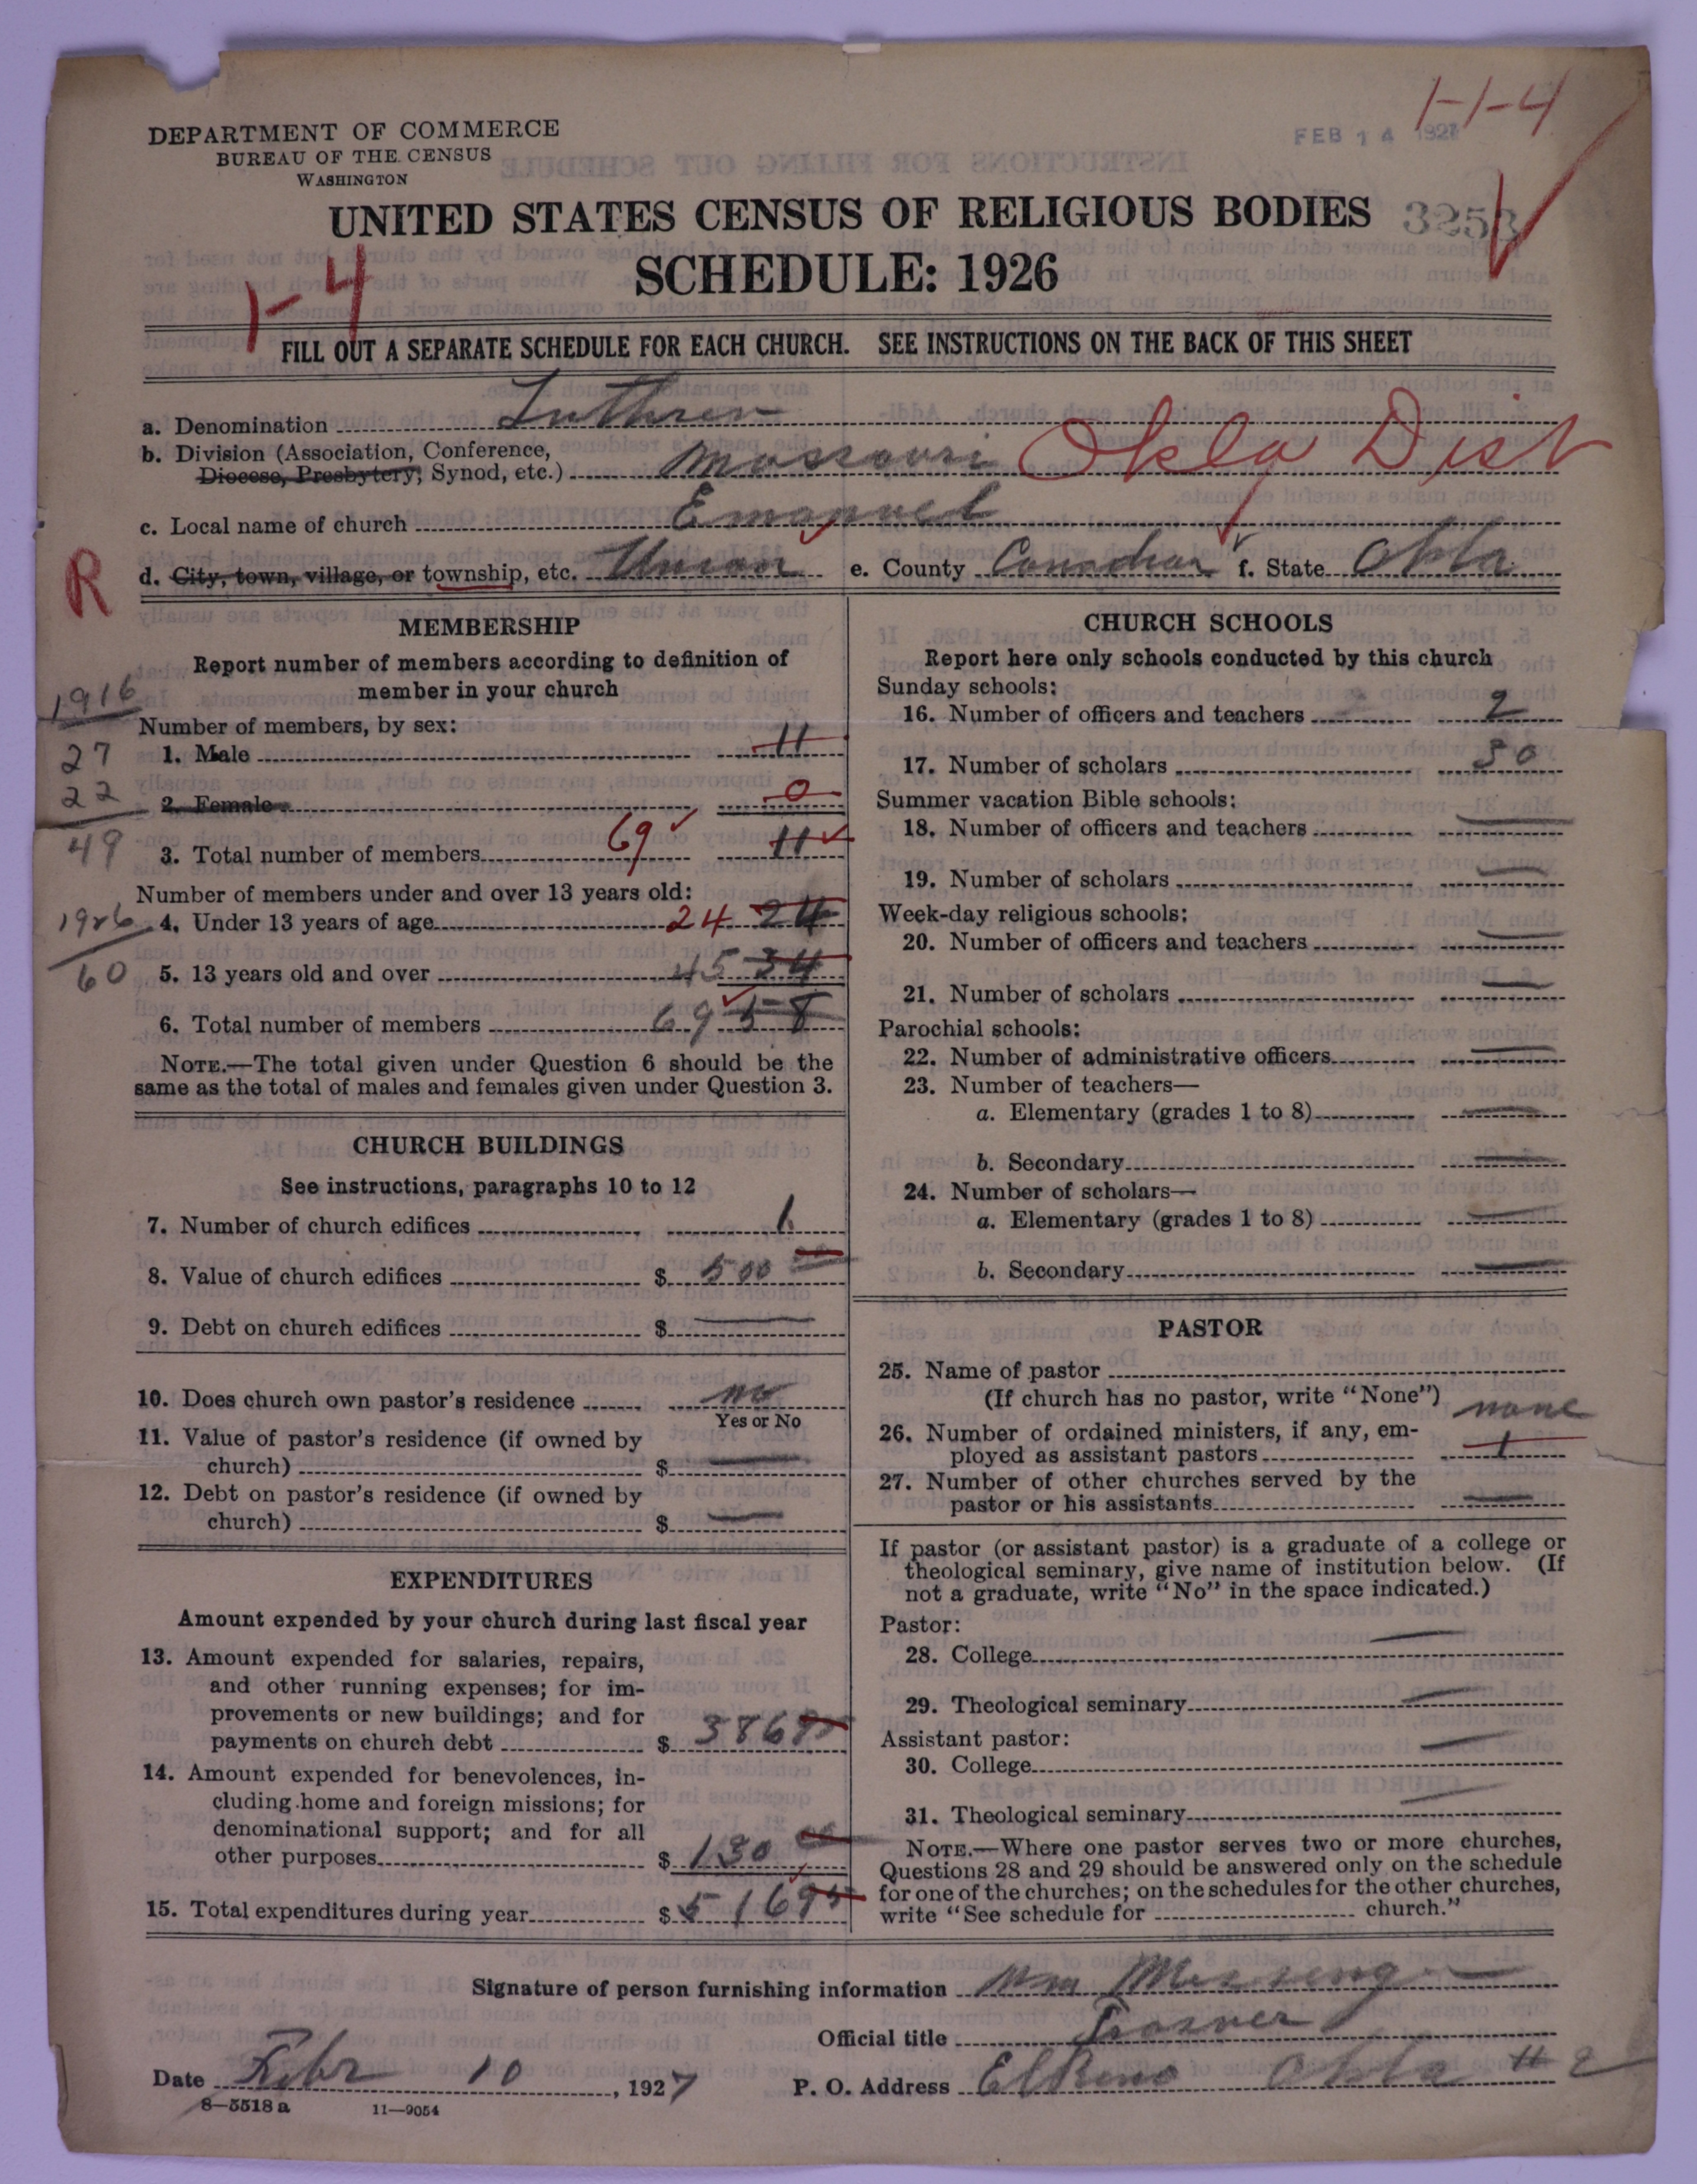 1-1-4
DEPARTMENT OF COMMERCE
BUREAU OF THE CENSUS
WASHINGTON
FEB 14 1927
UNITED STATES CENSUS OF RELIGIOUS BODIES
SCHEDULE: 1926
1-4
FILL OUT A SEPARATE SCHEDULE FOR EACH CHURCH. SEE INSTRUCTIONS ON THE BACK OF THIS SHEET
a. Denomination Luthren
b. Division (Association, Conference,
Diocese, Presbytery, Synod, etc.) Missouri Okla Dist
c. Local name of church Emanuel
d. City, town, village, or township, etc. Union e. County Canadian f. State Okla
R
MEMBERSHIP
Report number of members according to definition of
member in your church
1916
Number of members, by sex:
27 1. Male 11
22 2. Female 0
49 3. Total number of members 69 11
Number of members under and over 13 years old:
1926 4. Under 13 years of age 24 24
60 5. 13 years old and over 45 34
6. Total number of members 69 58
NOTE.—The total given under Question 6 should be the
same as the total of males and females given under Question 3.
CHURCH BUILDINGS
See instructions, paragraphs 10 to 12
7. Number of church edifices 1
8. Value of church edifices $ 500
9. Debt on church edifices $ —
10. Does church own pastor's residence no
Yes or No
11. Value of pastor's residence (if owned by
church) $ —
12. Debt on pastor's residence (if owned by
church) $ —
EXPENDITURES
Amount expended by your church during last fiscal year
13. Amount expended for salaries, repairs,
and other running expenses; for im-
provements or new buildings; and for
payments on church debt $ 386
14. Amount expended for benevolences, in-
cluding home and foreign missions; for
denominational support; and for all
other purposes $ 130
15. Total expenditures during year $ 516
CHURCH SCHOOLS
Report here only schools conducted by this church
Sunday schools:
16. Number of officers and teachers 2
17. Number of scholars 50
Summer vacation Bible schools:
18. Number of officers and teachers —
19. Number of scholars —
Week-day religious schools:
20. Number of officers and teachers —
21. Number of scholars —
Parochial schools:
22. Number of administrative officers —
23. Number of teachers—
a. Elementary (grades 1 to 8) —
b. Secondary —
24. Number of scholars—
a. Elementary (grades 1 to 8) —
b. Secondary —
PASTOR
25. Name of pastor
(If church has no pastor, write "None") none
26. Number of ordained ministers, if any, em-
ployed as assistant pastors 1
27. Number of other churches served by the
pastor or his assistants —
If pastor (or assistant pastor) is a graduate of a college or
theological seminary, give name of institution below. (If
not a graduate, write "No" in the space indicated.)
Pastor:
28. College —
29. Theological seminary —
Assistant pastor:
30. College —
31. Theological seminary —
NOTE.—Where one pastor serves two or more churches,
Questions 28 and 29 should be answered only on the schedule
for one of the churches; on the schedules for the other churches,
write "See schedule for church."
Signature of person furnishing information Wm
Official title
Date Febr 10, 1927 P. O. Address El Reno Okla # 2
8—5518 a 11—9054